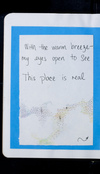 With the warm breeze
my eyes open to see
This place is real